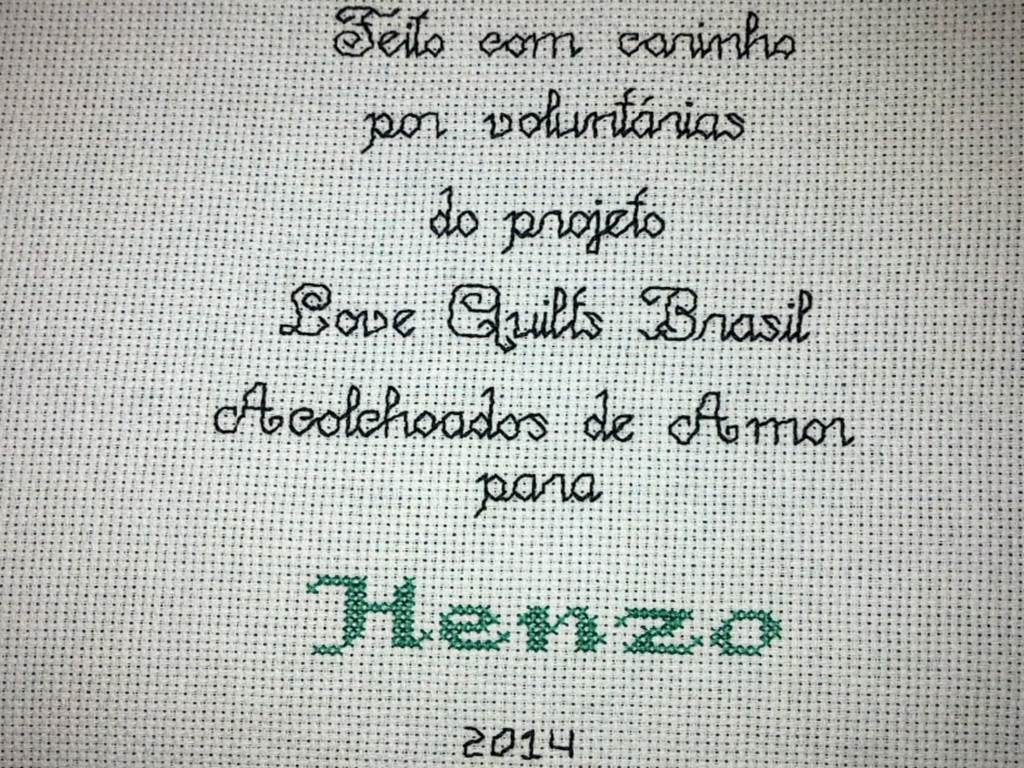 Feito com carinho
por voluntárias
do projeto
Love Quilts Brasil
Acolchoados de Amor
para
Henzo
2014